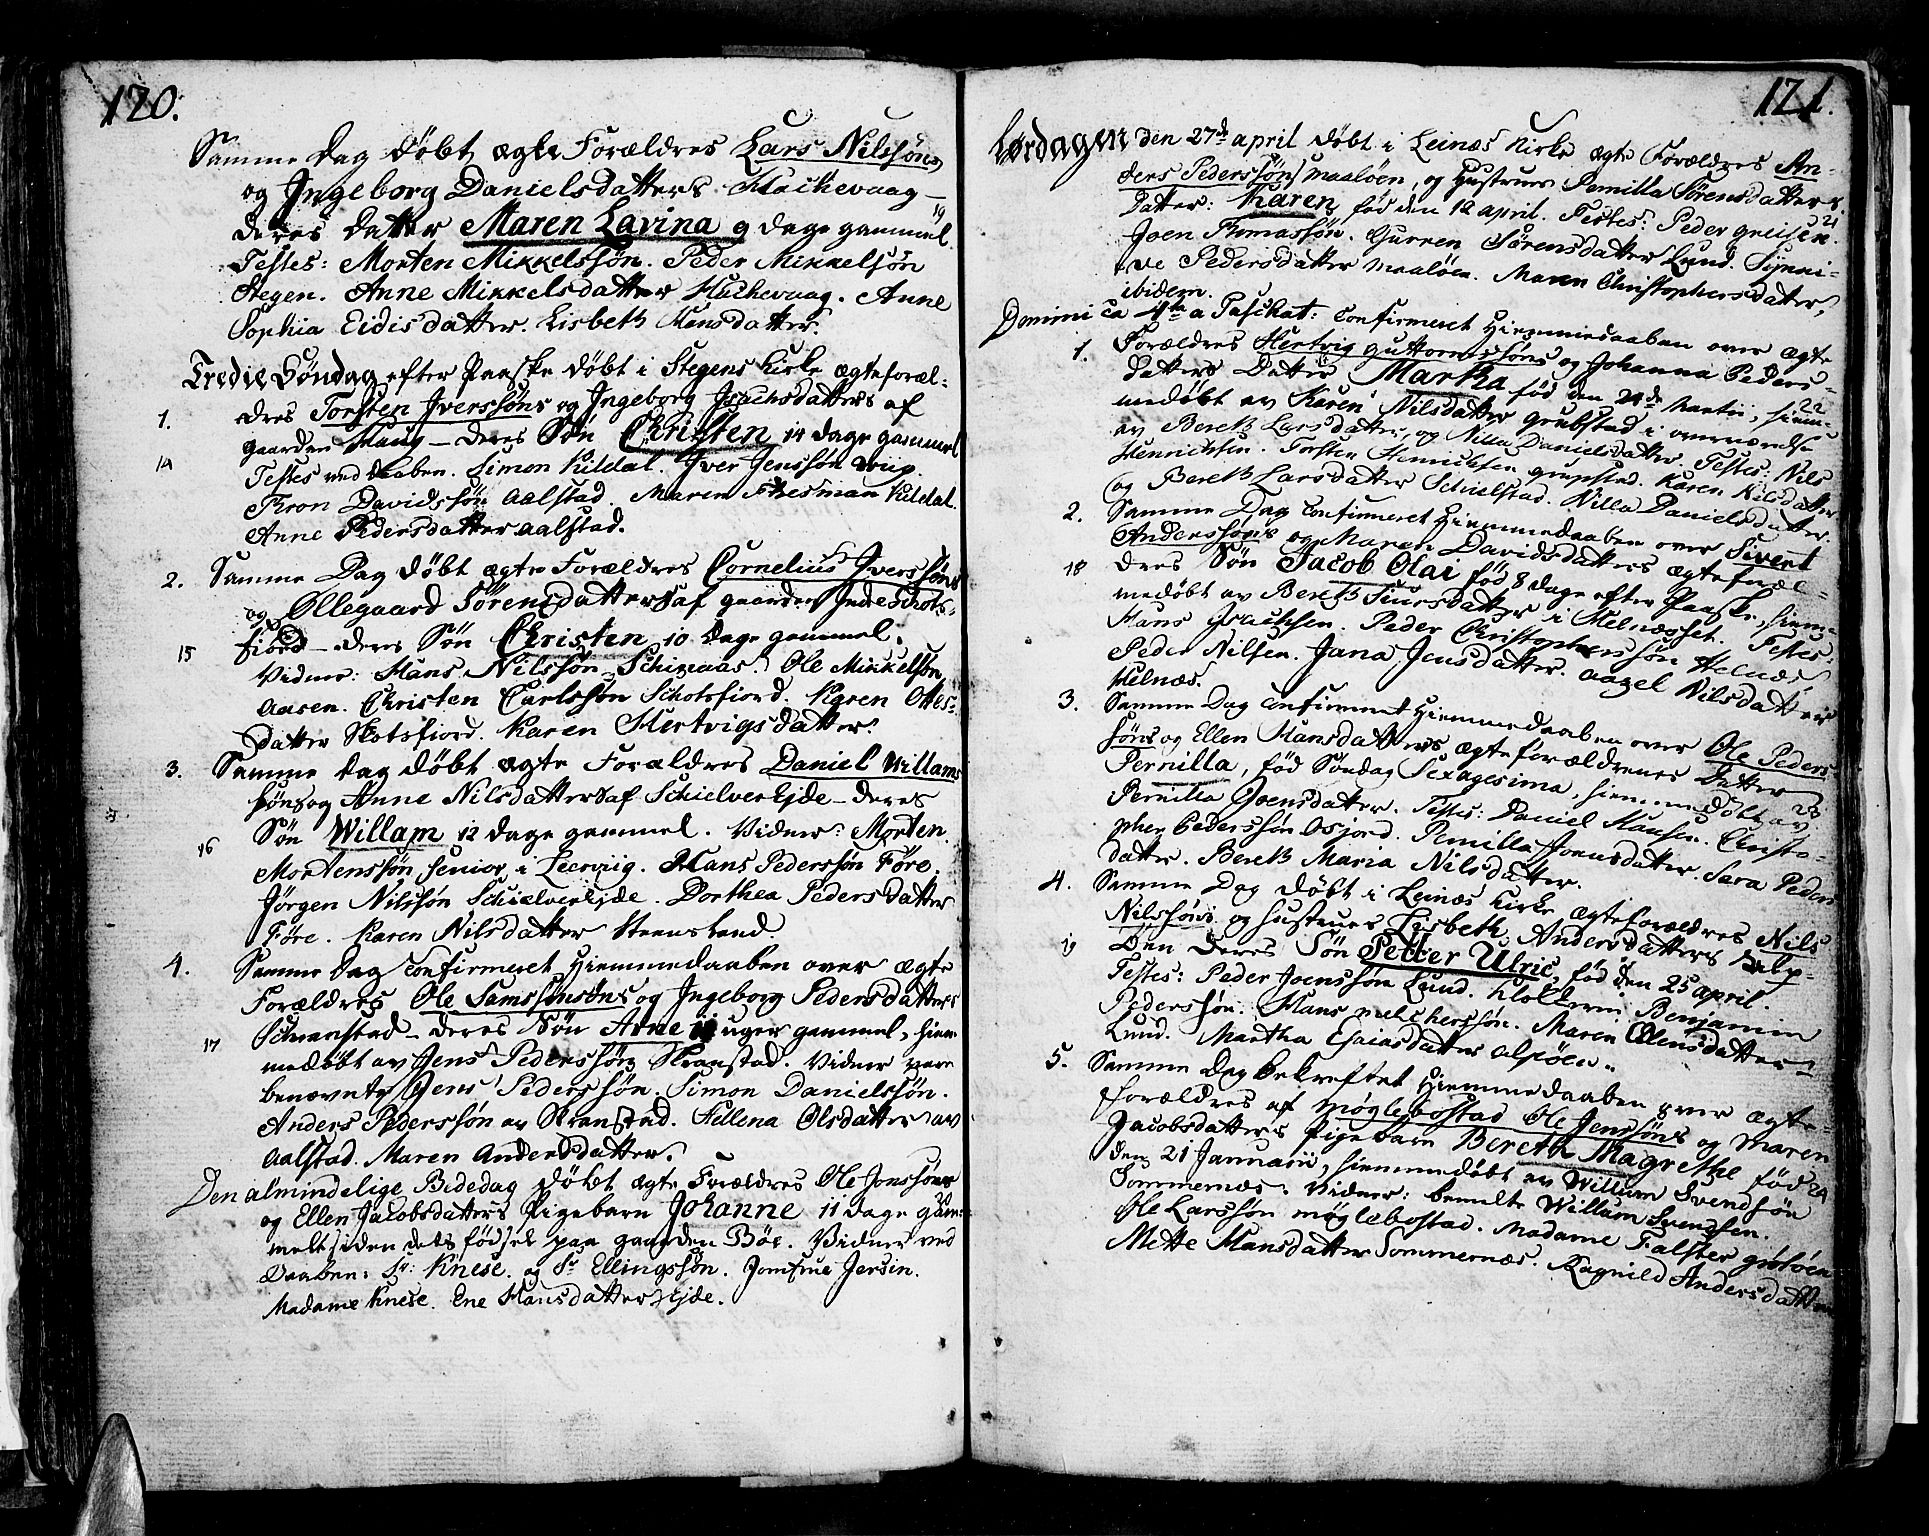 120.
Samme Dag døbt ægte Forældres Lars Nilssøns
og Ingeborg Danielsdatters Hachevaag -
deres datter Maren Lavina 9 dage gammel. 19
Testes: Morten Mikkelssøn. Peder Mikkelsøn
Stegen. Anne Mikkelsdatter Hachevaag. Anne
Sophia Eidisdatter. Lisbeth Hansdatter.
Tredie Søndag efter Paaske døbt i Stegens Kirke ægteforæl-
1. dres Torsten Iverssøns og Ingeborg Isachsdatters af
gaarden - deres Søn Christen 14 dage gammel
14 Testes ved daaben. Simon Kildal. Iver Jenssøn
Tron Davidssøn Aalstad. Maren Kildal.
Anne Pedersdatter Aalstad.
2. Samme Dag døbt ægte Forældres Cornelius Iverssøns
og Øllegaard Sørensdatters af gaarden Indeschots-
fiord - deres Søn Christen 10 dage gammel.
15 Vidner: Hans Nilssøn. Ole Mikkelsøn
Aasen. Christen Carlssøn Schotsfiord. Karen Ottes-
datter Skotsfiord. Karen Hertvigsdatter.
3. Samme dag døbt ægte Forældres Daniel Willams
søns og Anne Nilsdatters af Schielverejde - deres
Søn Willam 12 dage gammel. Vidner: Morten
16 Mortenssøn Senior i Leerviig. Hans Pederssøn Føre.
Jørgen Nilssøn Schielverejde. Dorthea Pedersdatter
Føre. Karen Nilsdatter Steensland.
4. Samme Dag confirmeret Hiemmedaaben over ægte
Forældres Ole Samssønsøns og Ingeborg Pedersdatters
Schranstad - deres Søn Arne 11 uger gammel, hiem-
17 medøbt av Jens Pederssøn Skranstad. Vidner vare
benævnte Jens Pederssøn. Simon Danielssøn.
Anders Pederssøn av Skranstad. Hellena Olsdatter av
Aalstad. Maren Andersdatter.
Den almindelige Bededag døbt ægte Forældres Ole Jonssøns
og Ellen Jacobsdatters Pigebarn Johanne 11 dage gam- 20
melt siden dets fødsel paa gaarden Böe. Vidner ved
Daaben: Sr. Knese. og Sr Ellingssøn. Jomfrue Jersin.
Madame Knese. Ene Hansdatter Ejde.
121.
Lørdagen den 27de april døbt i Leinæs Kirke ægte Forældres An-
ders Pederssøns Maaløen, og Hustrues Pernilla Sørensdatters
Datter: Karen født den 12 april. Testes: Peder Greisen. 21
Joen Thomassøn. Gurren Sørensdatter Lund. Synni-
ve Pedersdatter Maaløen. Maren Christophersdatter,
ibidem.
Dominica 4ta a Paschat: confirmeret Hiemmedaaben over ægte
1. Forældres Hertvig Guttormssøns og Johanna Peders-
datters Datter Martha fød den 24de Martii, hiem- 22
medøbt av Karen Nilsdatter Grubstad i overværelse
av Bereth Larsdatter, og Nilla Danielsdatter. Testes: Nils
Henrichsen. Torsten Henrichsen Grupstad. Karen Nilsdatter
og Bereth Larsdatter Schielstad. Nilla Danielsdatter.
2. Samme Dag confirmeret Hiemmedaaben over Sivert
Anderssøns og Maren Davidsdatters ægteforæl-
18 dres Søn Jacob Olai fød 8 dage efter Paaske, hiem-
medøbt av Bereth Siursdatter i Helnæsset. Testes:
Hans Isachsen. Peder Christopherssøn Helnæs
Peder Nilsen. Jana Jensdatter. Aagel Nilsdatter
Helnæs.
3. Samme Dag confirmeret Hiemmedaaben over Ole Peders-
søns og Ellen Hansdatters ægteforældrenes Datter
Pernilla, fød Søndag Sexagesima, hiemmedøbt av 23
Pernilla Joensdatter. Testes: Daniel Hansen. Christo-
pher Pederssøn Osjord. Pernilla Joensdatter. Sara Peders
datter. Bereth Maria Nilsdatter.
4. Samme Dag døbt i Leinæs Kirke ægteforældres Nils
Nilssøns og hustrues Lisbeth Andersdatters Kalp-
19 øen deres Søn Petter Ulric, fød den 25 april.
Testes: Peder Joenssøn Lund. Benjamin
Pederssøn. Hans Melcherssøn. Maren Ellensdatter
Lund. Martha Esaiasdatter Alpøen.
5. Samme Dag bekreftet Hiemmedaaben over ægte-
forældres af Møglebostad Ole Jenssøns og Maren
Jacobsdatters Pigebarn Bereth Magrethe fød 24
den 21 Januarii, hiemmedøbt av Willum Svendsøn
Sommernæs. Vidner: bemelte Willum Svendsen.
Ole Larssøn Møglebostad. Madame Falster Grøtøen
Mette Hansdatter Sommernæs. Ragnild Andersdatter